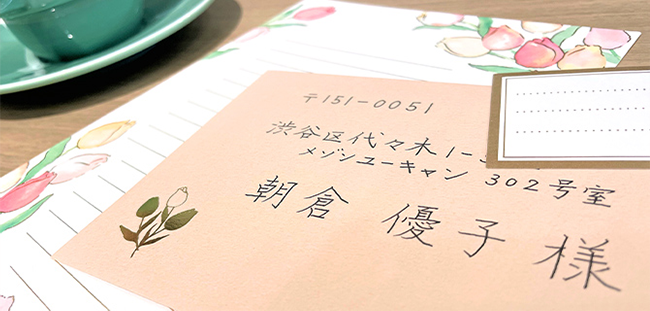 〒151-0051
渋谷区代々木1-
メゾンユーキャン 302号室
朝倉 優子 様